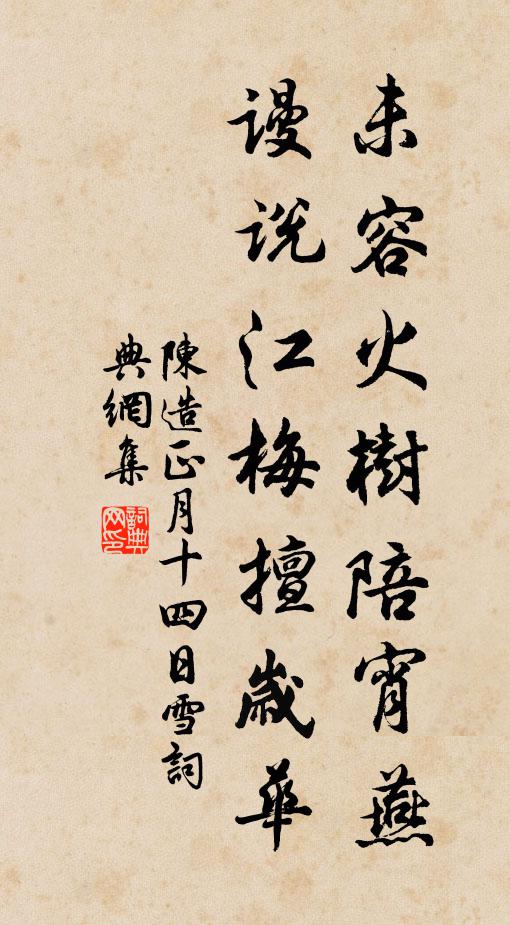 未容火樹陪宵燕
謾說江梅擅歲華
陳造正月十四日雪詞
典網集
詞典網印